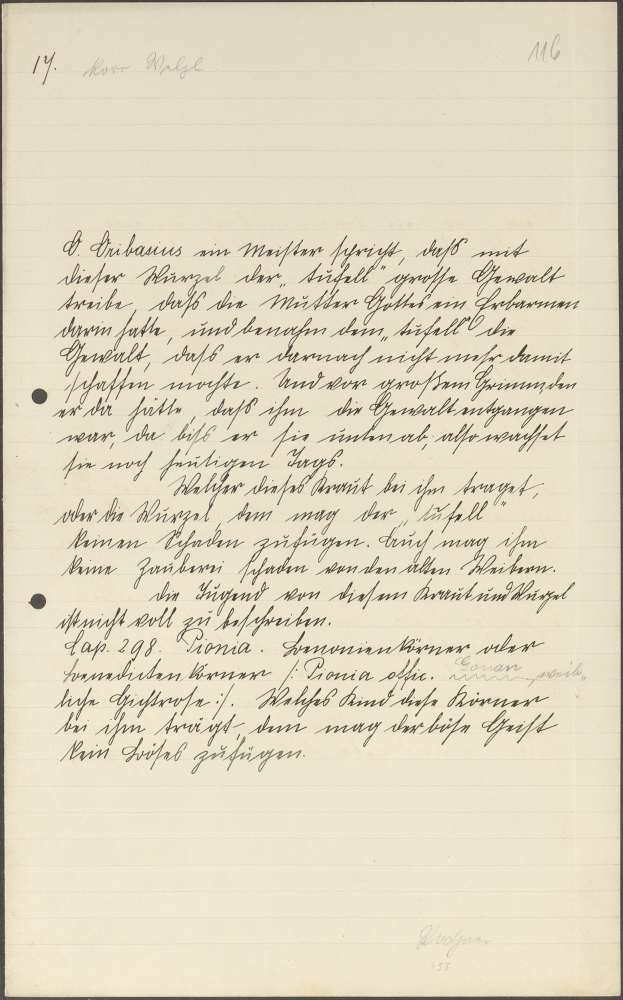 17. Korr Welzl 116
O. Oribasius ein Meister spricht, daß mit
dieser Wurzel der „tüfell" grosse Gewalt
treibe, daß die Mutter Gottes ein Erbarmen
darin hatte, und benahm dem „tüfell" die
Gewalt, daß er darnach nicht mehr damit
schaffen mochte. Und vor großem Grimm, den
er da hätte, daß ihm die Gewalt entgangen
war, da biß er sie unten ab, also wachset
sie noch heutigen Tags.
Welcher dieses Kraut bei ihm traget,
oder die Wurzel, dem mag der „tüfell"
keinen Schaden zufügen. Auch mag ihm
keine Zauberei schaden von den alten Weibern.
Die Tugend von diesem Kraut und Wurzel
ist nicht voll zu beschreiben.
Cap. 298. Pionia. Benonienkörner oder
Benedictenkörner /: Pionia offic. Gouan, weib-
liche Gichtrose :/. Welches Kind diese Körner
bei ihm trägt, dem mag der böse Geist
kein Böses zufügen.